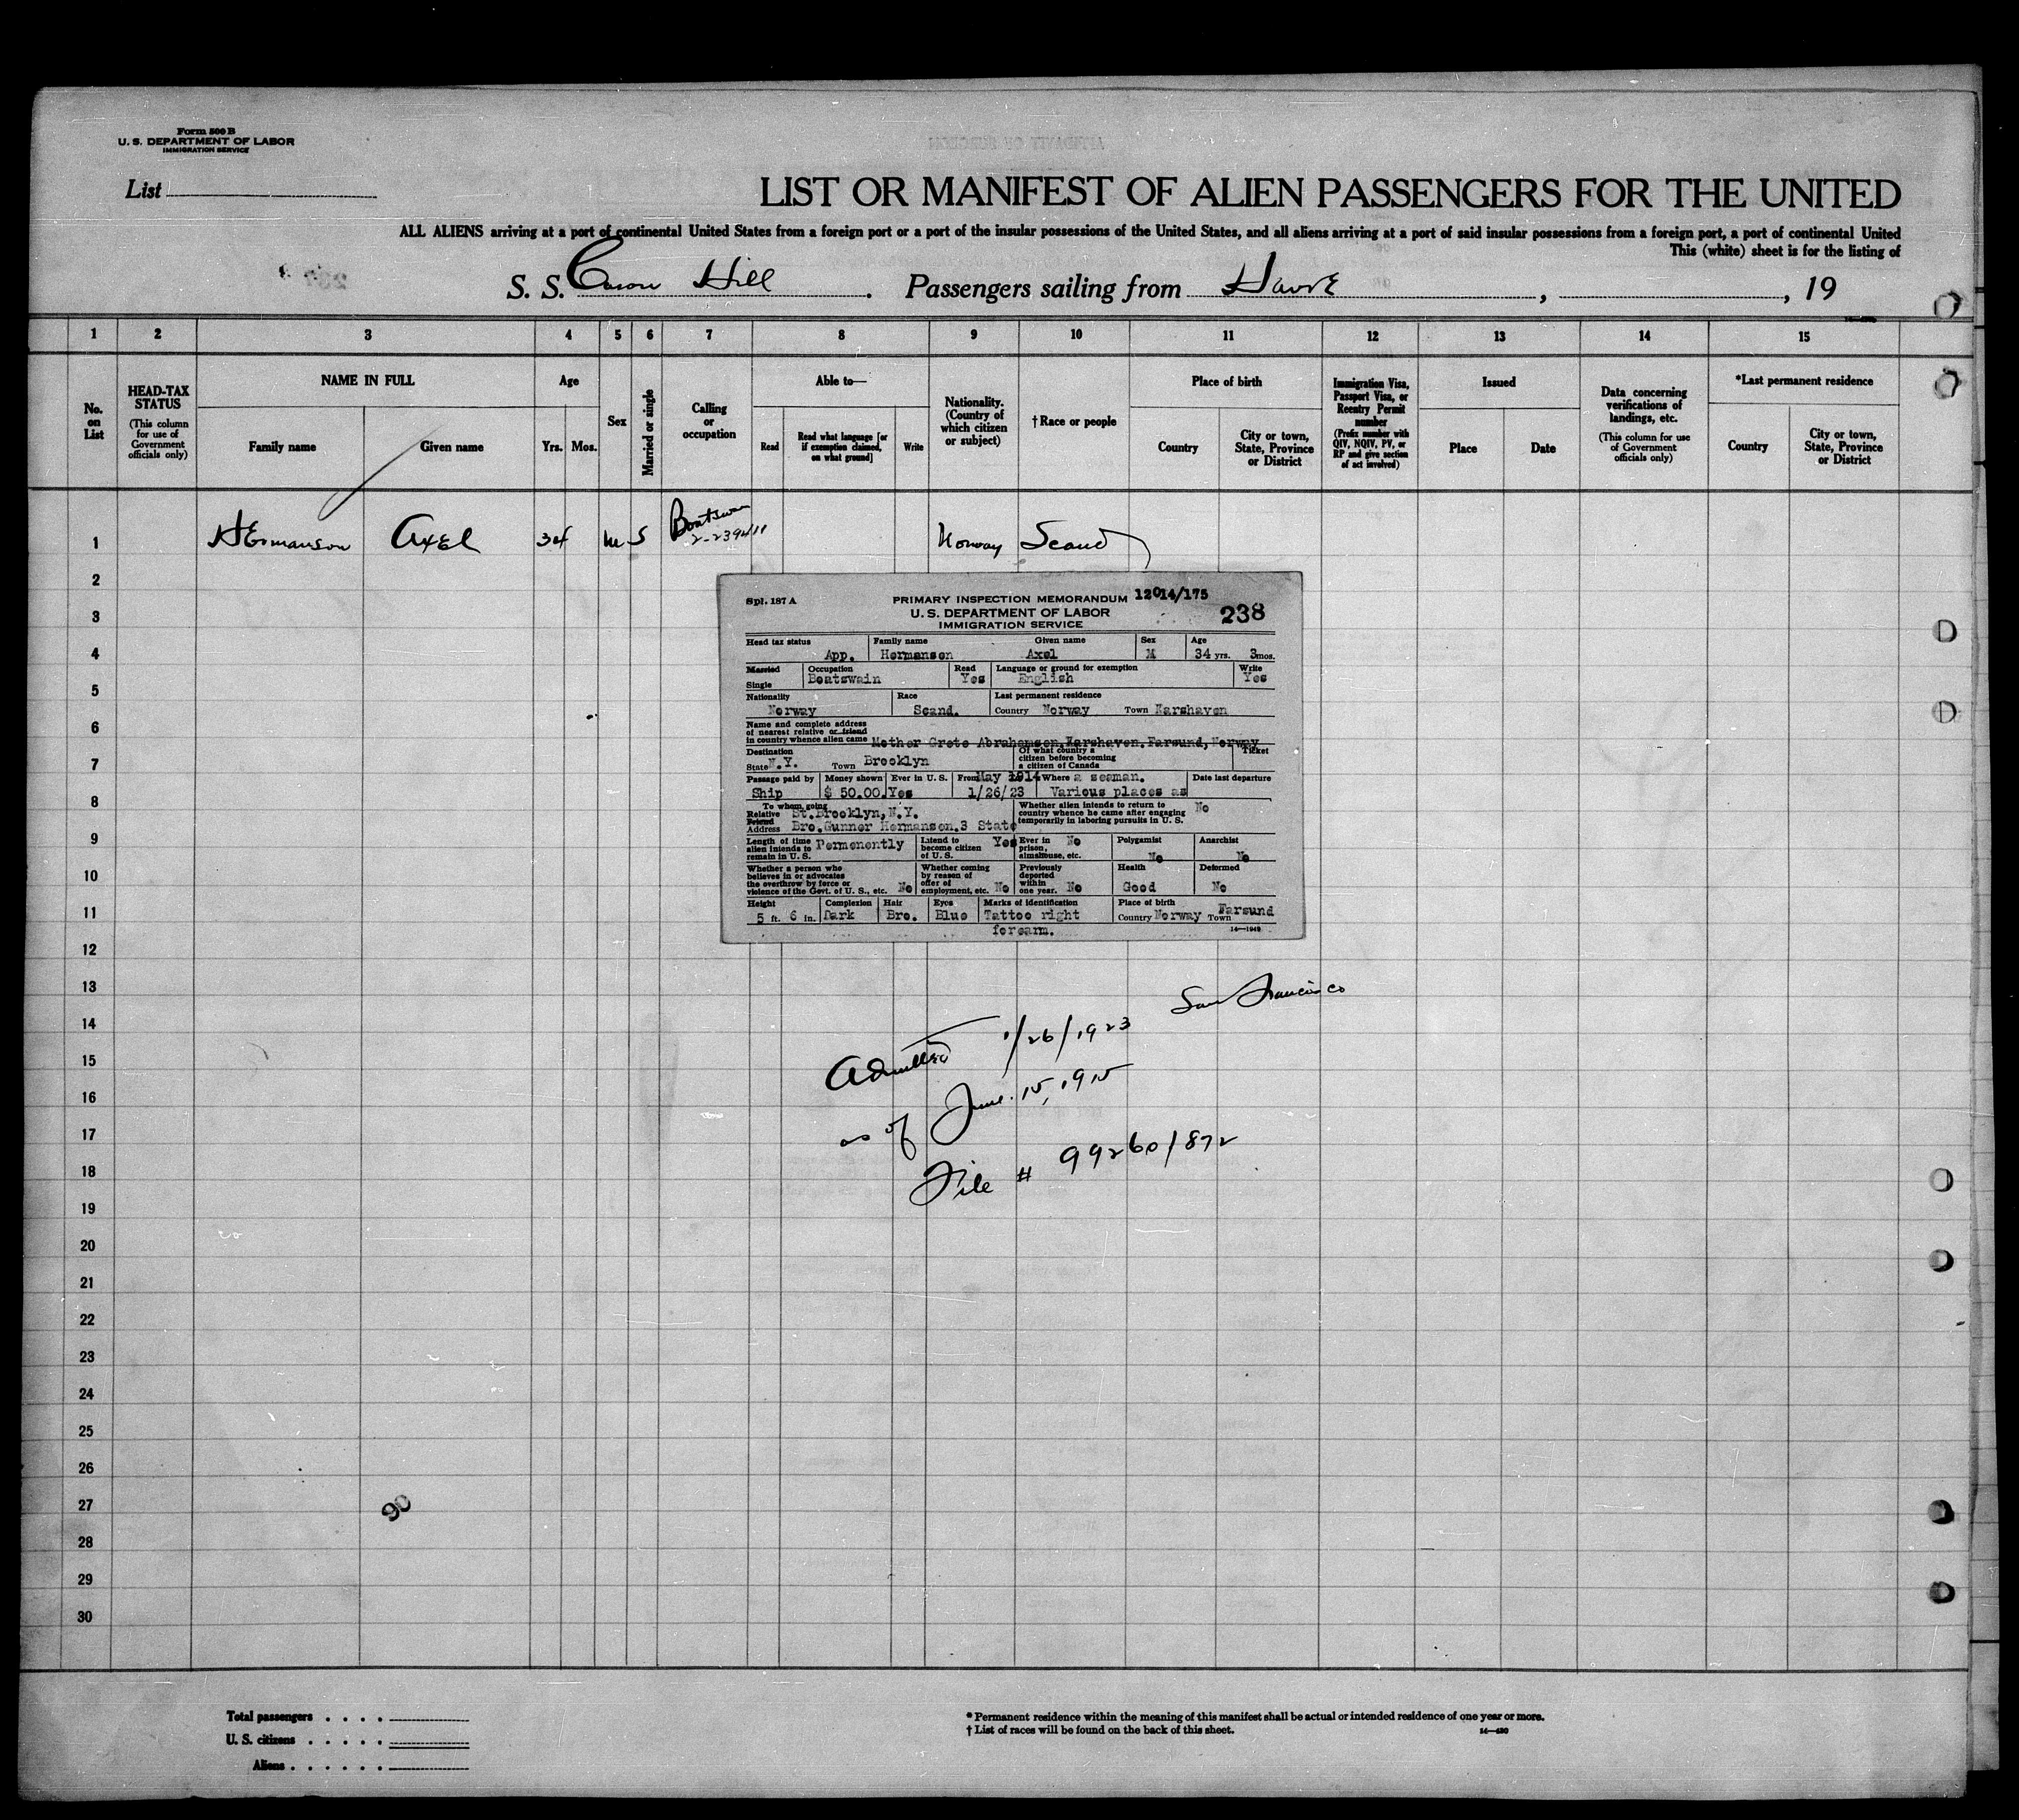 Form 500 B
U. S. DEPARTMENT OF LABOR
IMMIGRATION SERVICE
List
LIST OR MANIFEST OF ALIEN PASSENGERS FOR THE UNITED
ALL ALIENS arriving at a port of continental United States from a foreign port or a port of the insular possessions of the United States, and all aliens arriving at a port of said insular possessions from a foreign port, a port of continental United
This (white) sheet is for the listing of
S. S. Hill. Passengers sailing from Havre, , 19
1 2 3 4 5 6 7 8 9 10 11 12 13 14 15
No. on List
HEAD-TAX STATUS
(This column for use of Government officials only)
NAME IN FULL
Family name Given name
Age
Yrs. Mos.
Sex
Married or single
Calling or occupation
Able to—
Read Read what language [or if exemption claimed, on what ground] Write
Nationality. (Country of which citizen or subject)
†Race or people
Place of birth
Country City or town, State, Province or District
Immigration Visa, Passport Visa, or Reentry Permit number
(Prefix number with QIV, NQIV, PV, or RP and give section of act involved)
Issued
Place Date
Data concerning verifications of landings, etc.
(This column for use of Government officials only)
*Last permanent residence
Country City or town, State, Province or District
1 Hermanson Axel 34 M S Boatswain Norway Scand
2-239411
2
3
4
5
6
7
8
9
10
11
12
13
14
15
16
17
18
19
20
21
22
23
24
25
26
27
28
29
30
Spl. 187 A PRIMARY INSPECTION MEMORANDUM 12014/175
U. S. DEPARTMENT OF LABOR 238
IMMIGRATION SERVICE
Head tax status Family name Given name Sex Age
App. Hermanson Axel M 34 yrs. 3 mos.
Married Occupation Read Language or ground for exemption Write
Single Boatswain Yes English Yes
Nationality Race Last permanent residence
Norway Scand. Country Norway Town Karshaven
Name and complete address
of nearest relative or friend
in country whence alien came Mother Grete Abrahamson, Karshaven, Farsund, Norway
Destination Of what country a citizen before becoming a citizen of Canada Ticket
State N.Y. Town Brooklyn
Passage paid by Money shown Ever in U. S. From May 1914 Where a seaman. Date last departure
Ship $ 50.00 Yes 1/26/23 Various places as
To whom going Whether alien intends to return to country whence he came after engaging temporarily in laboring pursuits in U. S. No
Relative St. Brooklyn, N.Y.
Friend
Address Bro. Gunner Hermanson. 3 State
Length of time alien intends to remain in U. S. Permenently Intend to become citizen of U. S. Yes Ever in prison, almshouse, etc. No Polygamist No Anarchist No
Whether a person who believes in or advocates the overthrow by force or violence of the Govt. of U. S., etc. No Whether coming by reason of offer of employment, etc. No Previously deported within one year. No Health Good Deformed No
Height Complexion Hair Eyes Marks of identification Place of birth
5 ft. 6 in. Dark Bro. Blue Tattoo right Country Norway Town Farsund
forearm. 14—1949
San Francisco
Admitted 1/26/1923
as of June. 15, 1915
File # 99260/872
90
Total passengers
U. S. citizens
Aliens
* Permanent residence within the meaning of this manifest shall be actual or intended residence of one year or more.
† List of races will be found on the back of this sheet.
14—430